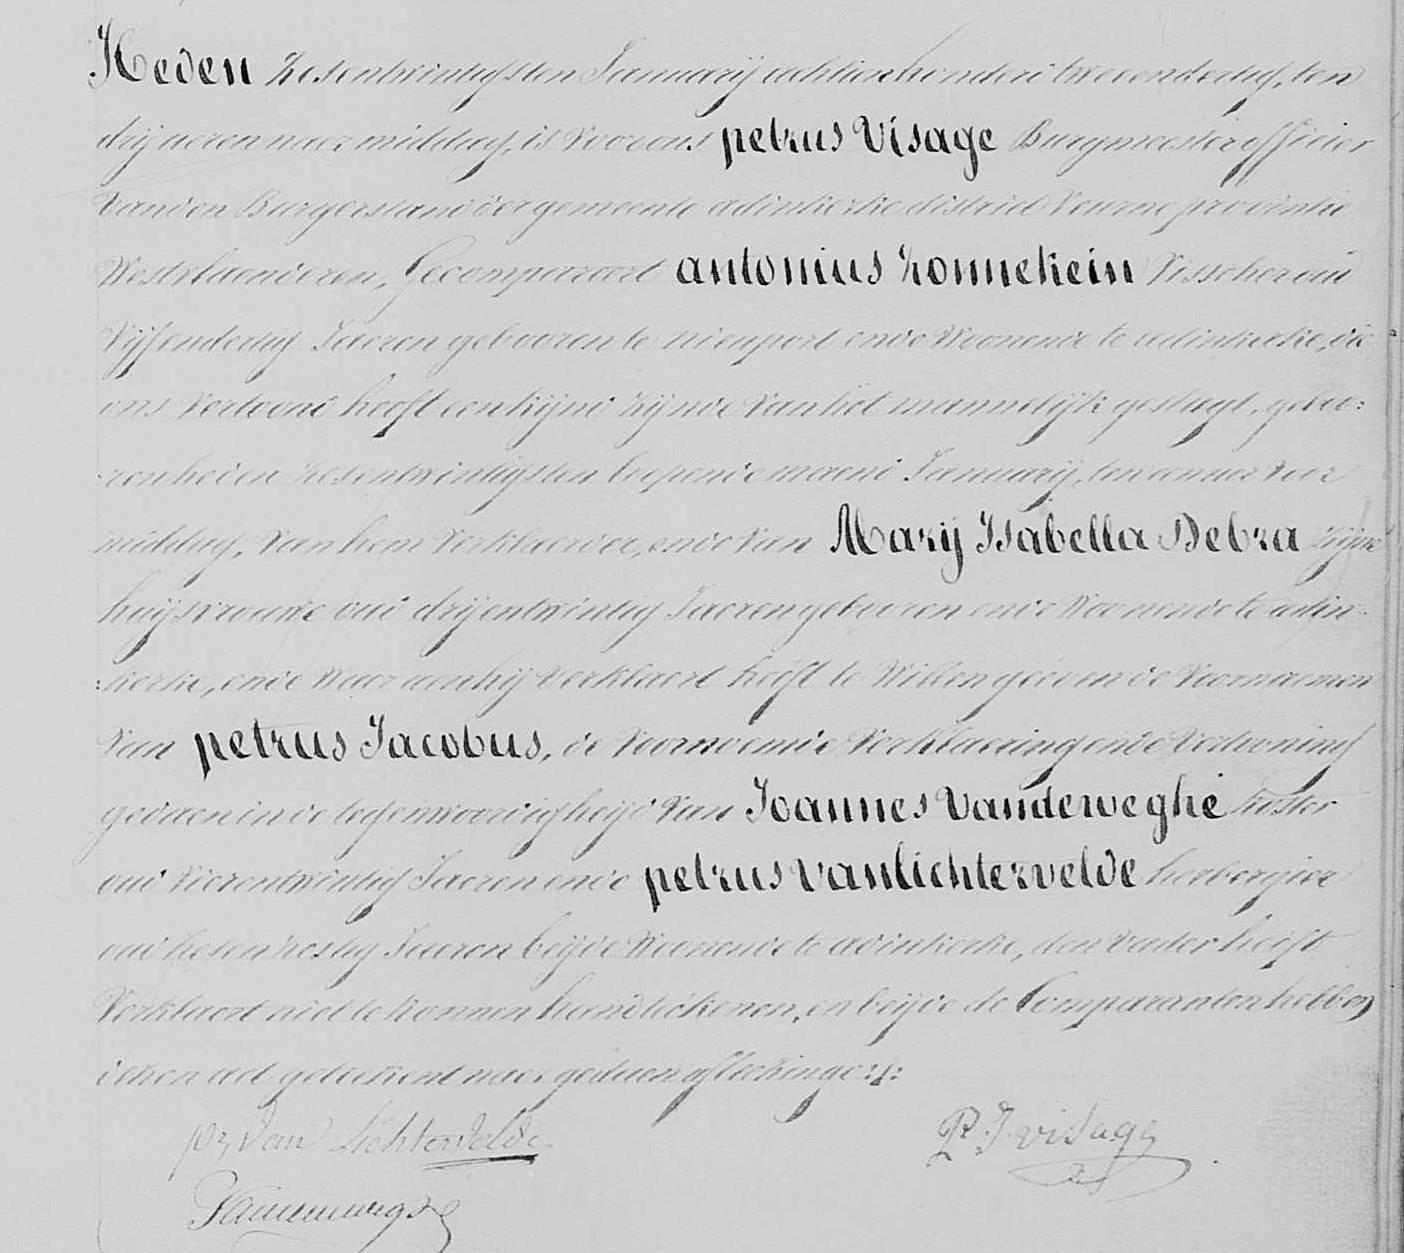 Heden zesentwintigsten January achtien hondert tweeendertig, ten
drij ueren naer middag, is voor ons petrus Visage Burgmeester officier
van den Burgerstand der gemeente adinkerke district Veurne provintie
Westvlaenderen, Gecompareert antonius Zonnekein Visscher oud
Vijfendertig Jaeren geboren te nieuport ende Woonende te adinkerke, die
ons vertoont heeft een kijnd zijnde van het mannelijk geslagt, gebo:
:ren heden zesentwintigsten loopende maend January, ten Voor
middag, van hem Verklaerder, ende van Marij Isabella Debra zijne
huijsvrouwe oud drijentwintig Jaeren geboren ende Woonende te adin:
:kerke, ende Waer aen hij verklaert heeft te Willen geeven de Voornaemen
van petrus Jacobus, de Voornoemde Verklaering ende Vertooning
gedaen in de tegenwoordigheijd van Joannes Vandeweghe koster
oud Vierentwintig Jaeren ende petrus vanlichtervelde herbergier
oud zesenzestig Jaeren beijde Woonende te adinkerke, den vader heeft
Verklaert niet te konnen handteekenen, en beijde de Comparanten hebben
deken act geteekent naer gedaen aflezinge:/:
pr Van Lichtervelde P J visage